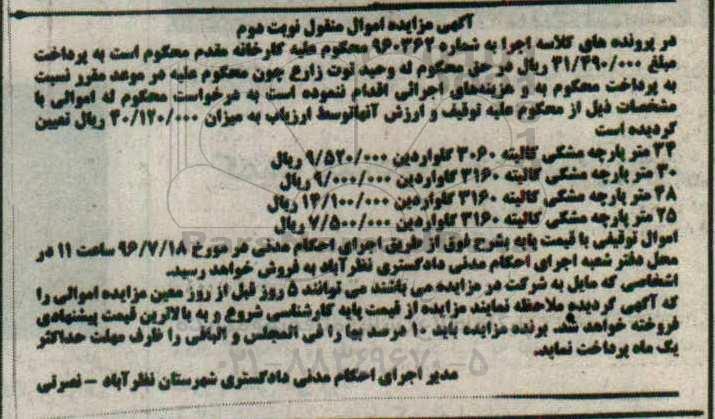 آگهی مزایده اموال منقول نوبت دوم
در پرونده های کلاسه اجرا به شماره ۹۶۰۳۶۲ محکوم علیه کارخانه مقدم محکوم است به پرداخت
مبلغ ۳۱/۳۹۰/۰۰۰ ریال در حق محکوم له وحید توت زارع چون محکوم علیه در موعد مقرر نسبت
به پرداخت محکوم به و هزینه‌های اجرائی اقدام ننموده است به درخواست محکوم له اموالی با
مشخصات ذیل از محکوم علیه توقیف و ارزش آنهاتوسط ارزیاب به میزان ۴۰/۱۲۰/۰۰۰ ریال تعیین
گردیده است
۳۴ متر پارچه مشکی کالیته ۳۰۶۰ کلواردین ۹/۵۲۰/۰۰۰ ریال
۳۰ متر پارچه مشکی کالیته ۳۱۶۰ کلواردین ۹/۰۰۰/۰۰۰ ریال
۴۸ متر پارچه مشکی کالیته ۳۱۶۰ کلواردین ۱۴/۱۰۰/۰۰۰ ریال
۲۵ متر پارچه مشکی کالیته ۳۱۶۰ کلواردین ۷/۵۰۰/۰۰۰ ریال
اموال توقیفی با قیمت پایه بشرح فوق از طریق اجرای احکام مدنی در مورخ ۹۶/۷/۱۸ ساعت ۱۱ در
محل دفتر شعبه اجرای احکام مدنی دادگستری نظرآباد به فروش خواهد رسید.
اشخاصی که مایل به شرکت در مزایده می باشند می توانند ۵ روز قبل از روز معین مزایده اموالی را
که آگهی گردیده ملاحظه نمایند مزایده از قیمت پایه کارشناسی شروع و به بالاترین قیمت پیشنهادی
فروخته خواهد شد. برنده مزایده باید ۱۰ درصد بها را فی المجلس و الباقی را ظرف مهلت حداکثر
یک ماه پرداخت نماید.
۰۲۱-۸۸۳۴۹۶۷۰-۵
مدیر اجرای احکام مدنی دادگستری شهرستان نظرآباد – نصرتی